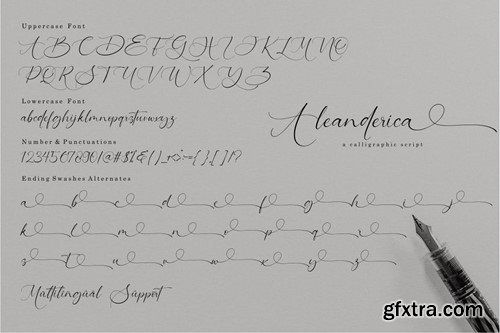 Uppercase Font
A B C D E F G H I J K L M N O
P Q R S T U V W X Y Z
Lowercase Font
abcdefghijklmnopqrstuvwxyz
Number & Punctuations
Ending Swashes Alternates
a b c d e f g h i j
k l m n o p q r
s t u v w x y z
Multilingual Support
Aleanderica
a calligraphic script
gfxtra.com